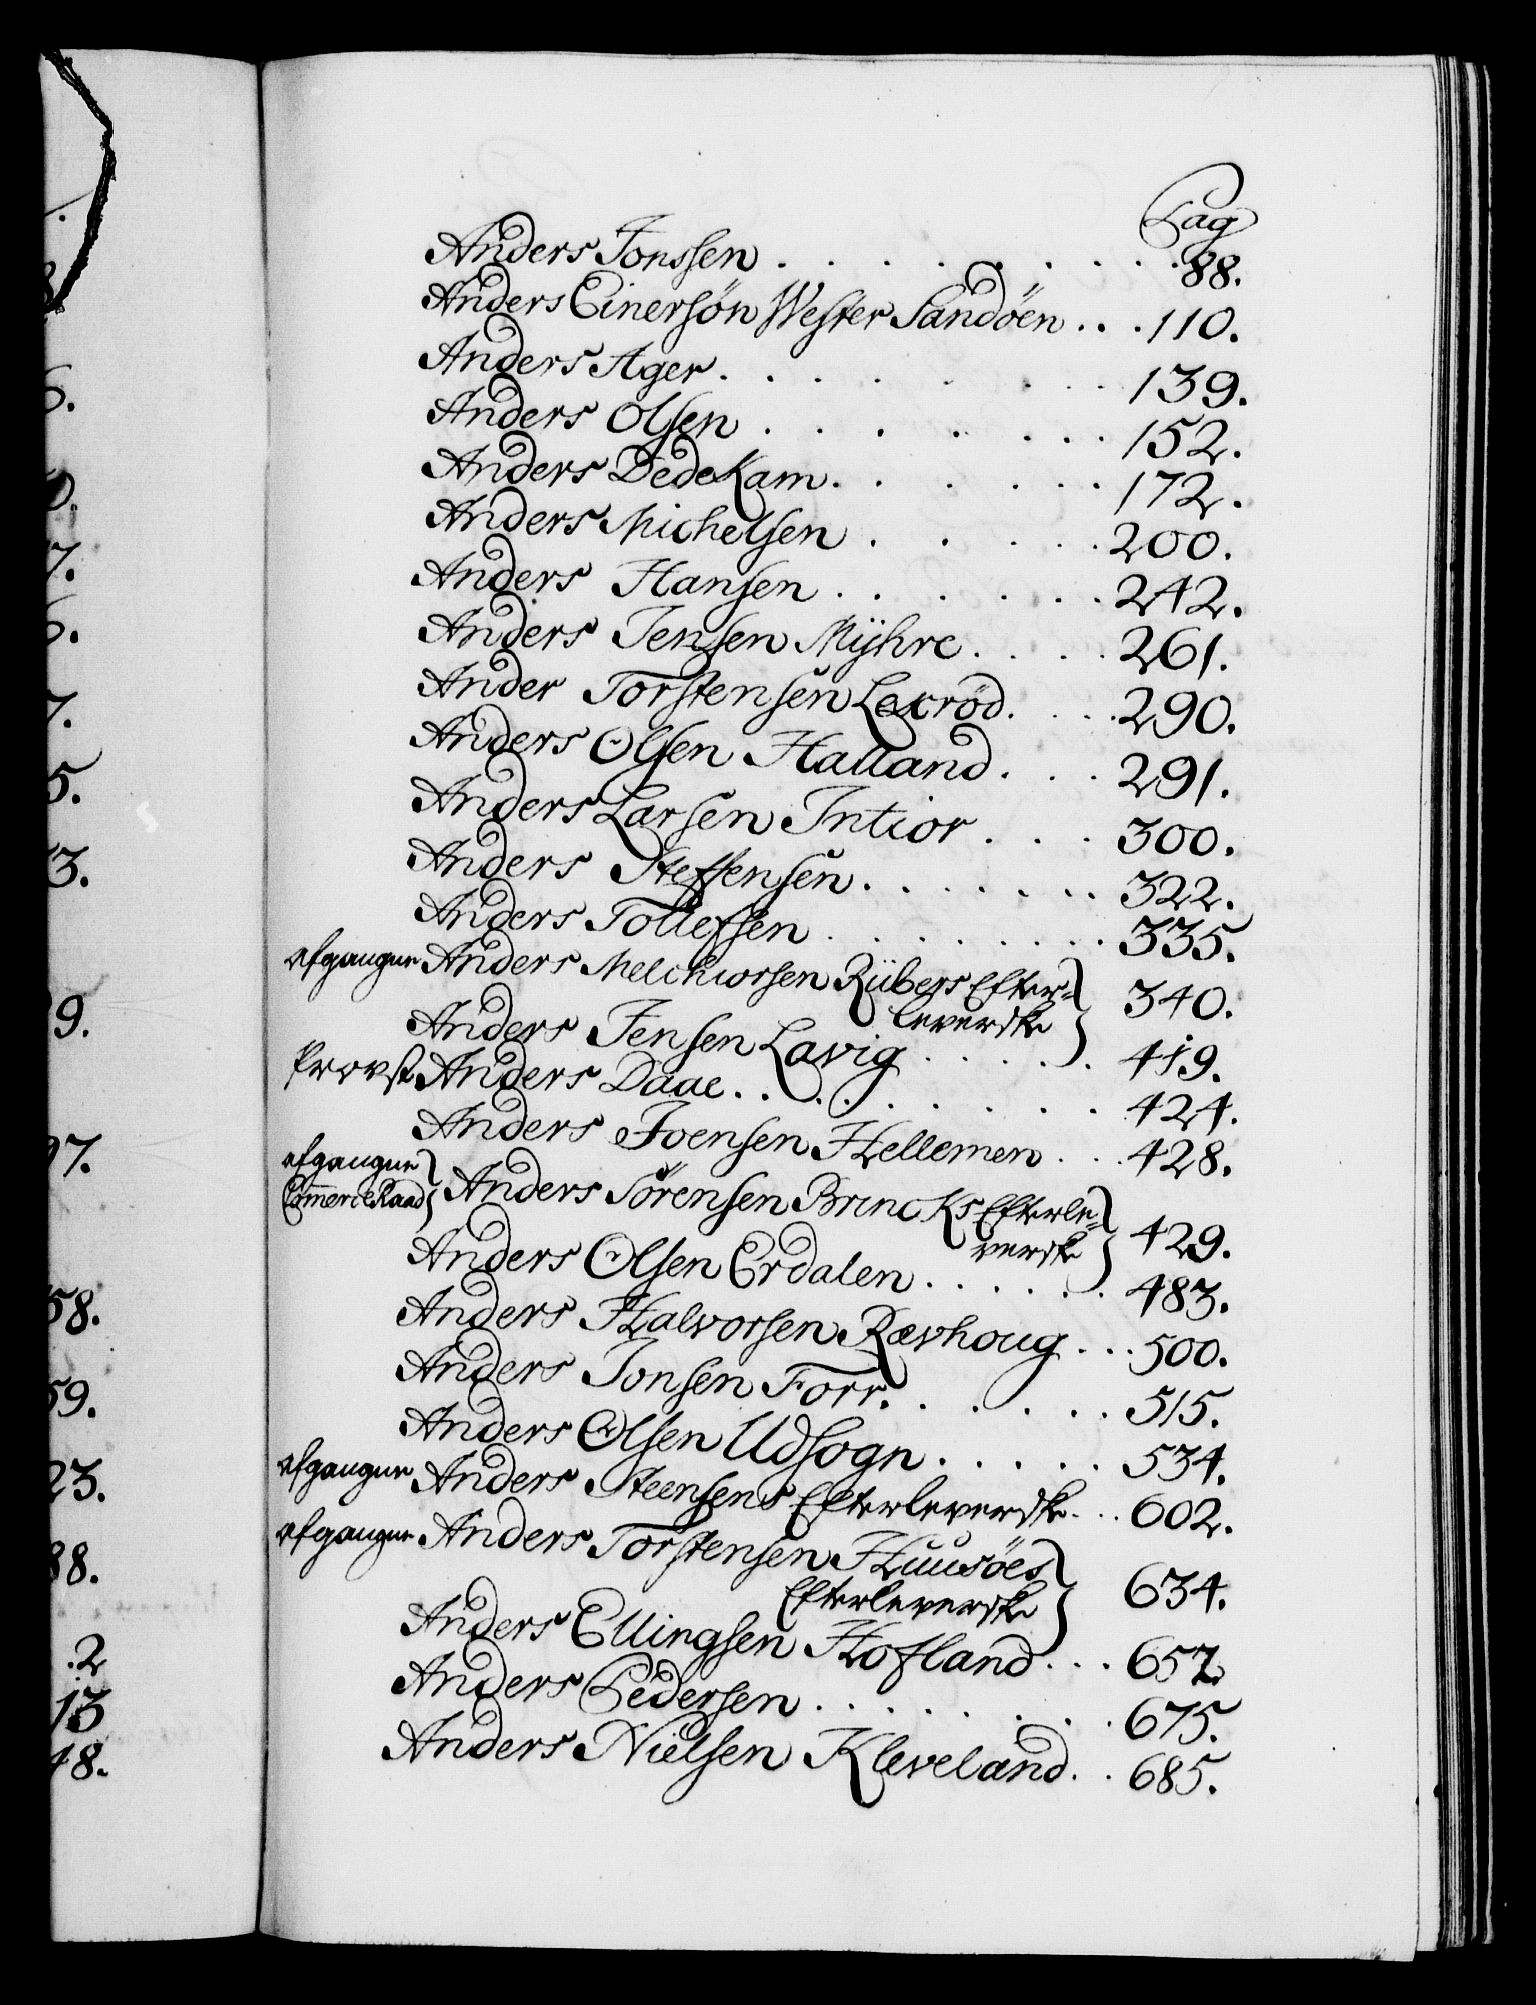 Pag
Anders Jonssen . . . . . . . . 88.
Anders Einersøn Wester Sandöen . . . 110.
Anders Ager . . . . . . . . 139.
Anders Olsen . . . . . . . 152.
Anders Dedekam . . . . . . 172.
Anders Michelsen . . . . . 200.
Anders Hansen . . . . . . 242.
Anders Jensen Mÿhre . . . . 261.
Ander Torstensen Lexröd . . . . 290.
Anders Olsen Halland . . . 291.
Anders Larsen Intior . . . 300.
Anders Steffensen . . . . . . . 322.
Anders Tollefsen . . . . . . . . 335.
afgangne Anders Melchiorsen Rübers Efter=
leverske } 340.
Anders Jensen Lavig . . . . . 419.
Provst Anders Daae . . . . . . . . 424.
Anders Joensen Hellemen . . . 428.
afgangne
CommerceRaad } Anders Sörensen Brincks Efterle=
verske } 429.
Anders Olsen Erdalen . . . . . . 483.
Anders Halvorsen Rævhoug . . . 500.
Anders Jonsen Forr . . . . . . 515.
Anders Olsen Udsogn . . . . . 534.
afgangne Anders Steensens Efterleverske . . . 602.
afgangne Anders Torstensen Huusöes
Efterleverske } 634.
Anders Ellingsen Hofland . . . 657
Anders Pedersen . . . . . . . . 675.
Anders Nielsen Kleveland . . 685.